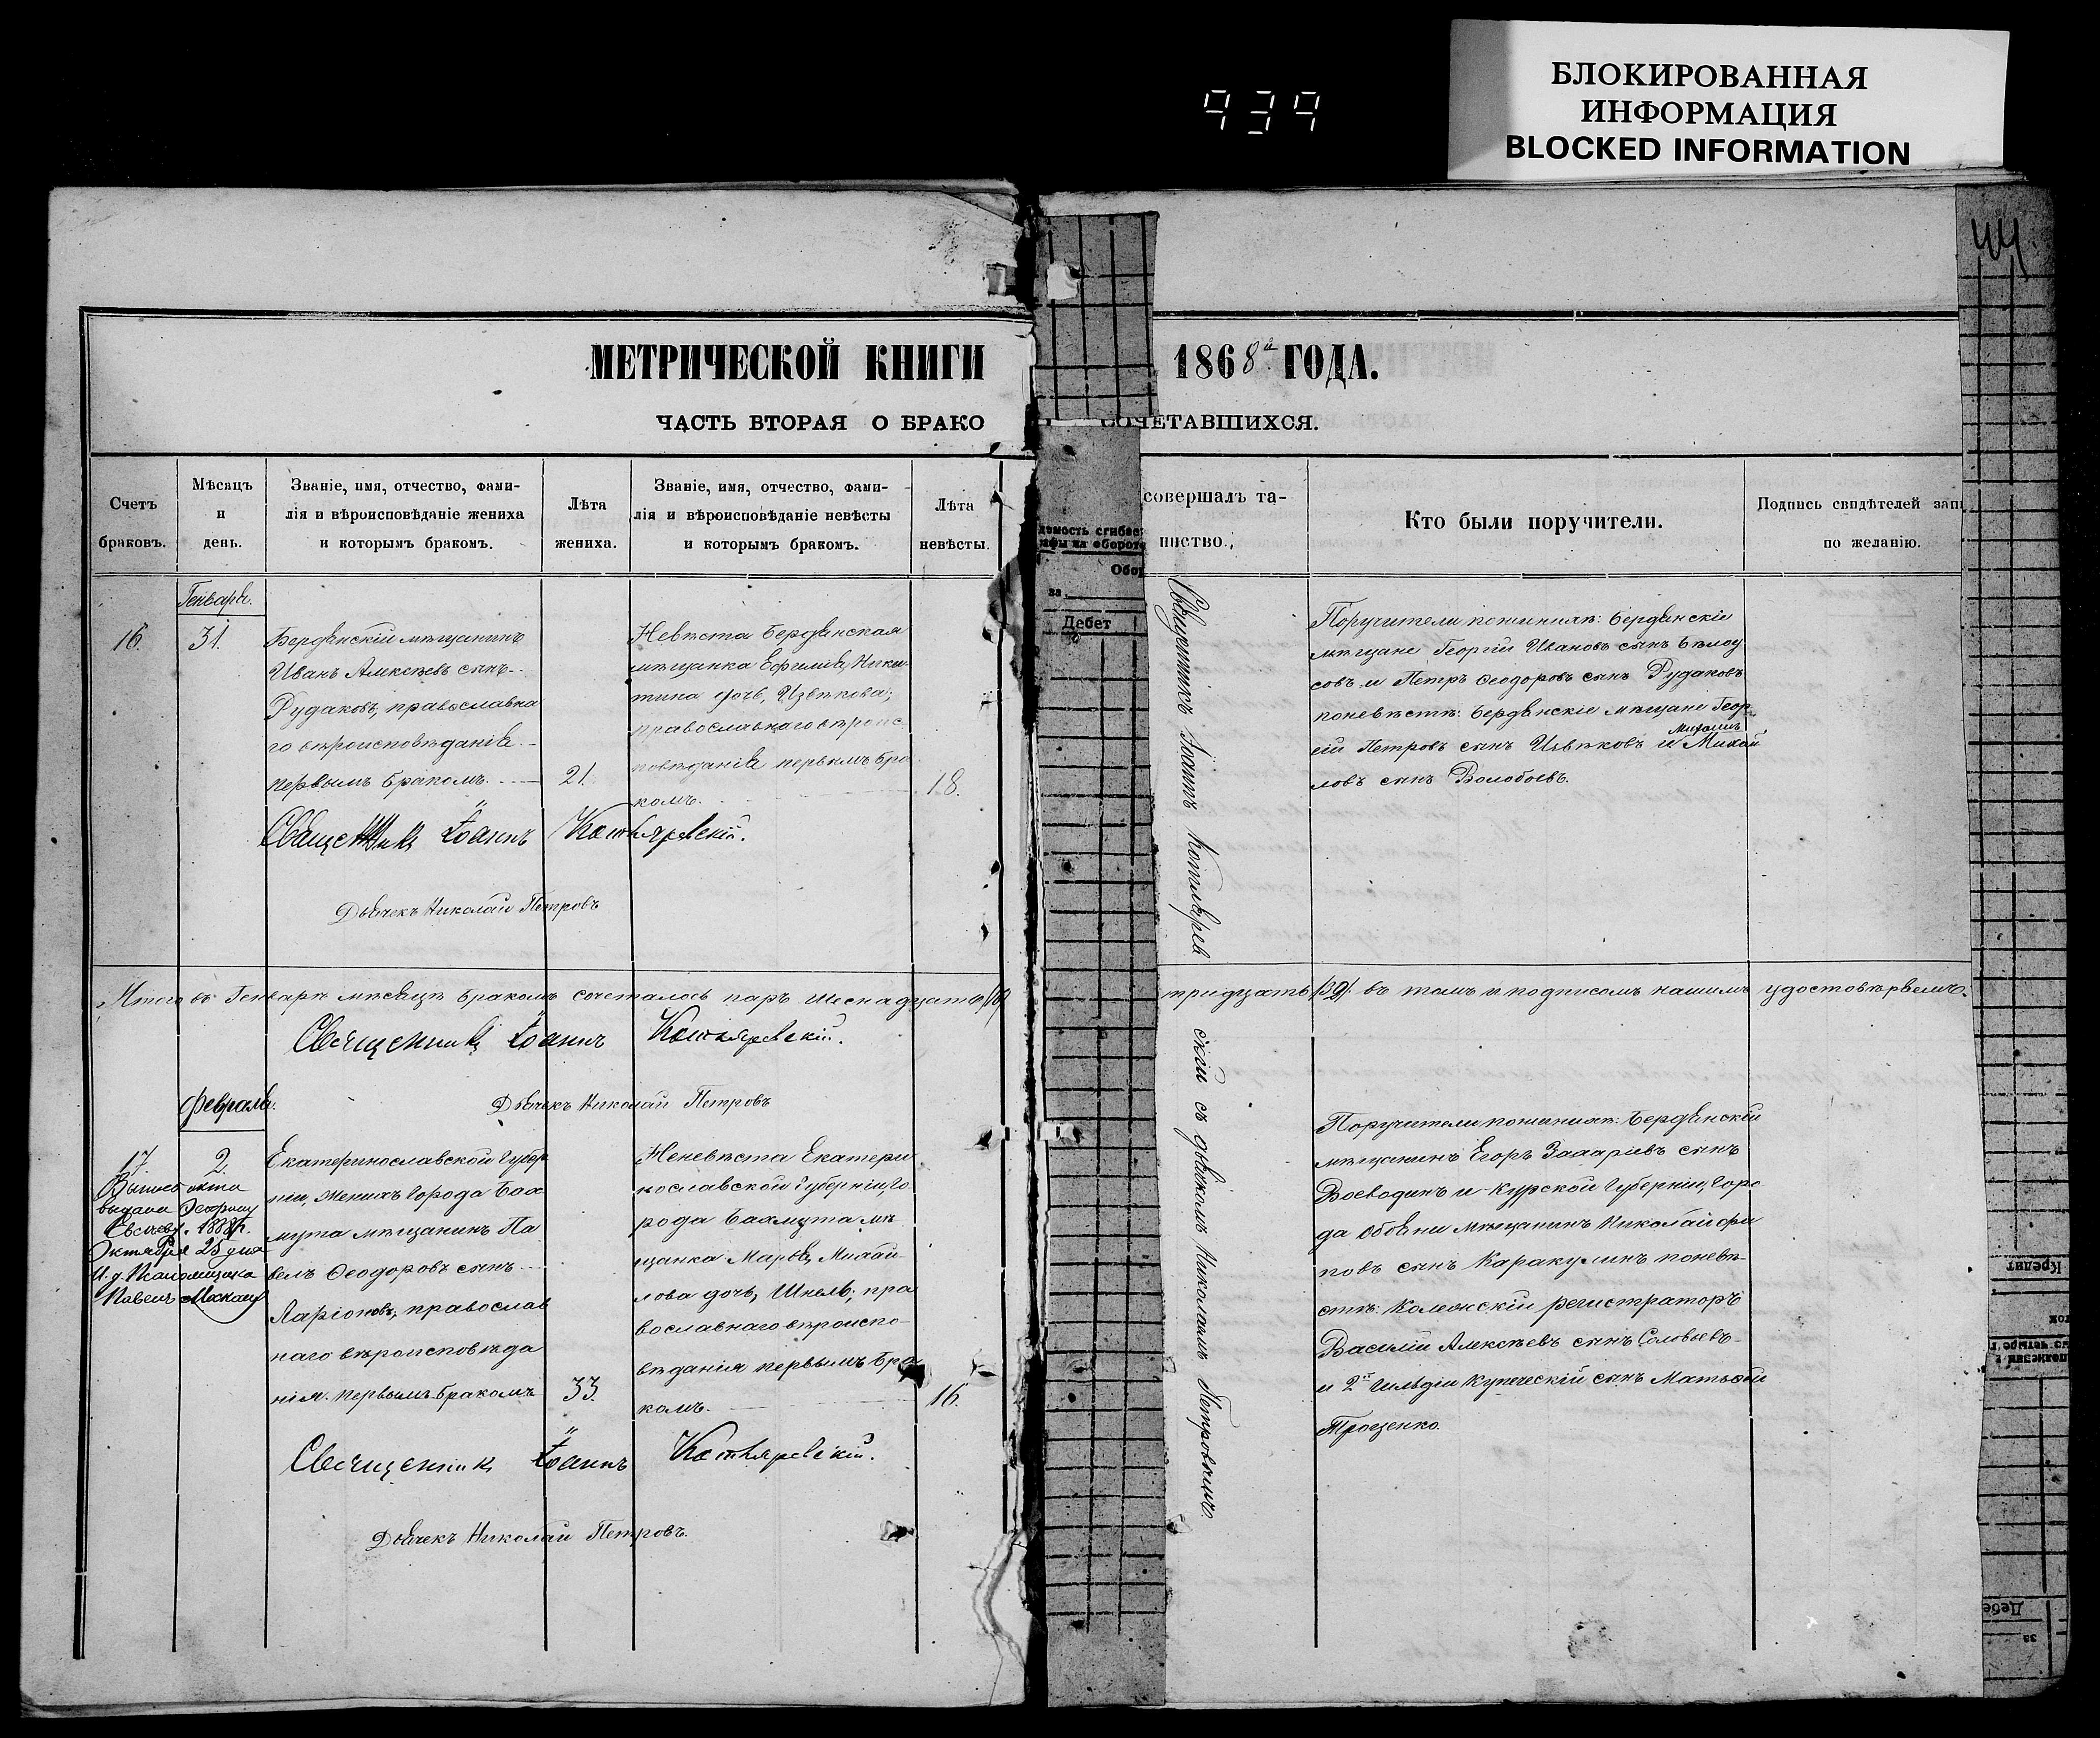 939
БЛОКИРОВАННАЯ
ИНФОРМАЦИЯ
BLOCKED INFORMATION
44
МЕТРИЧЕСКОЙ КНИГИ 1868й ГОДА.
ЧАСТЬ ВТОРАЯ О БРАКО СОЧЕТАВШИХСЯ.
Счетъ
браковъ.
Мѣсяцъ
и
день.
Званіе, имя, отчество, фами-
лія и вѣроисповѣданіе жениха
и которымъ бракомъ.
Лѣта
жениха.
Званіе, имя, отчество, фами-
лія и вѣроисповѣданіе невѣсты
и которымъ бракомъ.
Лѣта
невѣсты.
совершалъ та-
инство.,
Кто были поручители.
Подпись свидѣтелей запи
по желанію.
Дебет
Генваря.
16. 31.
Бердянскій мѣщанинъ
Иванъ Алексѣевъ сынъ
Рудаковъ, православна
го вѣроисповѣданія
первымъ бракомъ.
21.
Невѣста Бердянская
мѣщанка Ефимія Ники
тина дочь, Извѣкова;
православнаго вѣроис
повѣданія первымъ бра
комъ.
18.
Священникъ Іоаннъ Котляревскій.
Дьячекъ Николай Петровъ
Священникъ Іоаннъ Котляревскій съ дьячкомъ Николаемъ Петровымъ.
Поручители по женихѣ: Бердянскіе
мѣщане Георгій Ивановъ сынъ Бѣлоу
совъ и Петръ Ѳеодоровъ сынъ Рудаковъ
по невѣстѣ: Бердянскіе мѣщане Геор
гій Петровъ сынъ Извѣковъ и Михаилъ Михай
ловъ сынъ Волобоевъ.
Итого въ Генварѣ мѣсяцѣ бракомъ сочеталось паръ шеснадцать /16/
тридцать /30/. въ томъ и подписомъ нашимъ удостовѣряемъ.
Священникъ Іоаннъ Котляревскій.
Дьячекъ Николай Петровъ
Февраля.
17. 2.
выдана
1888 г.
Октября 25 дня
Павелъ
Екатеринославской Губер
ніи, Женихъ Города Бах
мута мѣщанинъ Па
велъ Ѳеодоровъ сынъ
Ларіоновъ, православ
наго вѣроисповѣда
нія. первымъ бракомъ
33.
Женевѣста Екатери
нославской Губерніи, Го
рода Бахмута мѣ
щанка Марья Михай
лова дочь, Шнель; пра
вославнаго вѣроиспо-
вѣданія первымъ бра
комъ.
16.
Священникъ Іоаннъ Котляревскій.
Дьячекъ Николай Петровъ.
Поручители по женихѣ: Бердянскій
мѣщанинъ Егоръ Захаріевъ сынъ
Воеводинъ и Курской Губерніи, Горо
да Обояни мѣщанинъ Николай Фи
повъ сынъ Каракулинъ по невѣ
стѣ: Колежскій регистраторъ
Василій Алексѣевъ сынъ Соловьевъ
и 2й Гильдіи Купеческій сынъ Матвѣй
Троценко.
Кредит